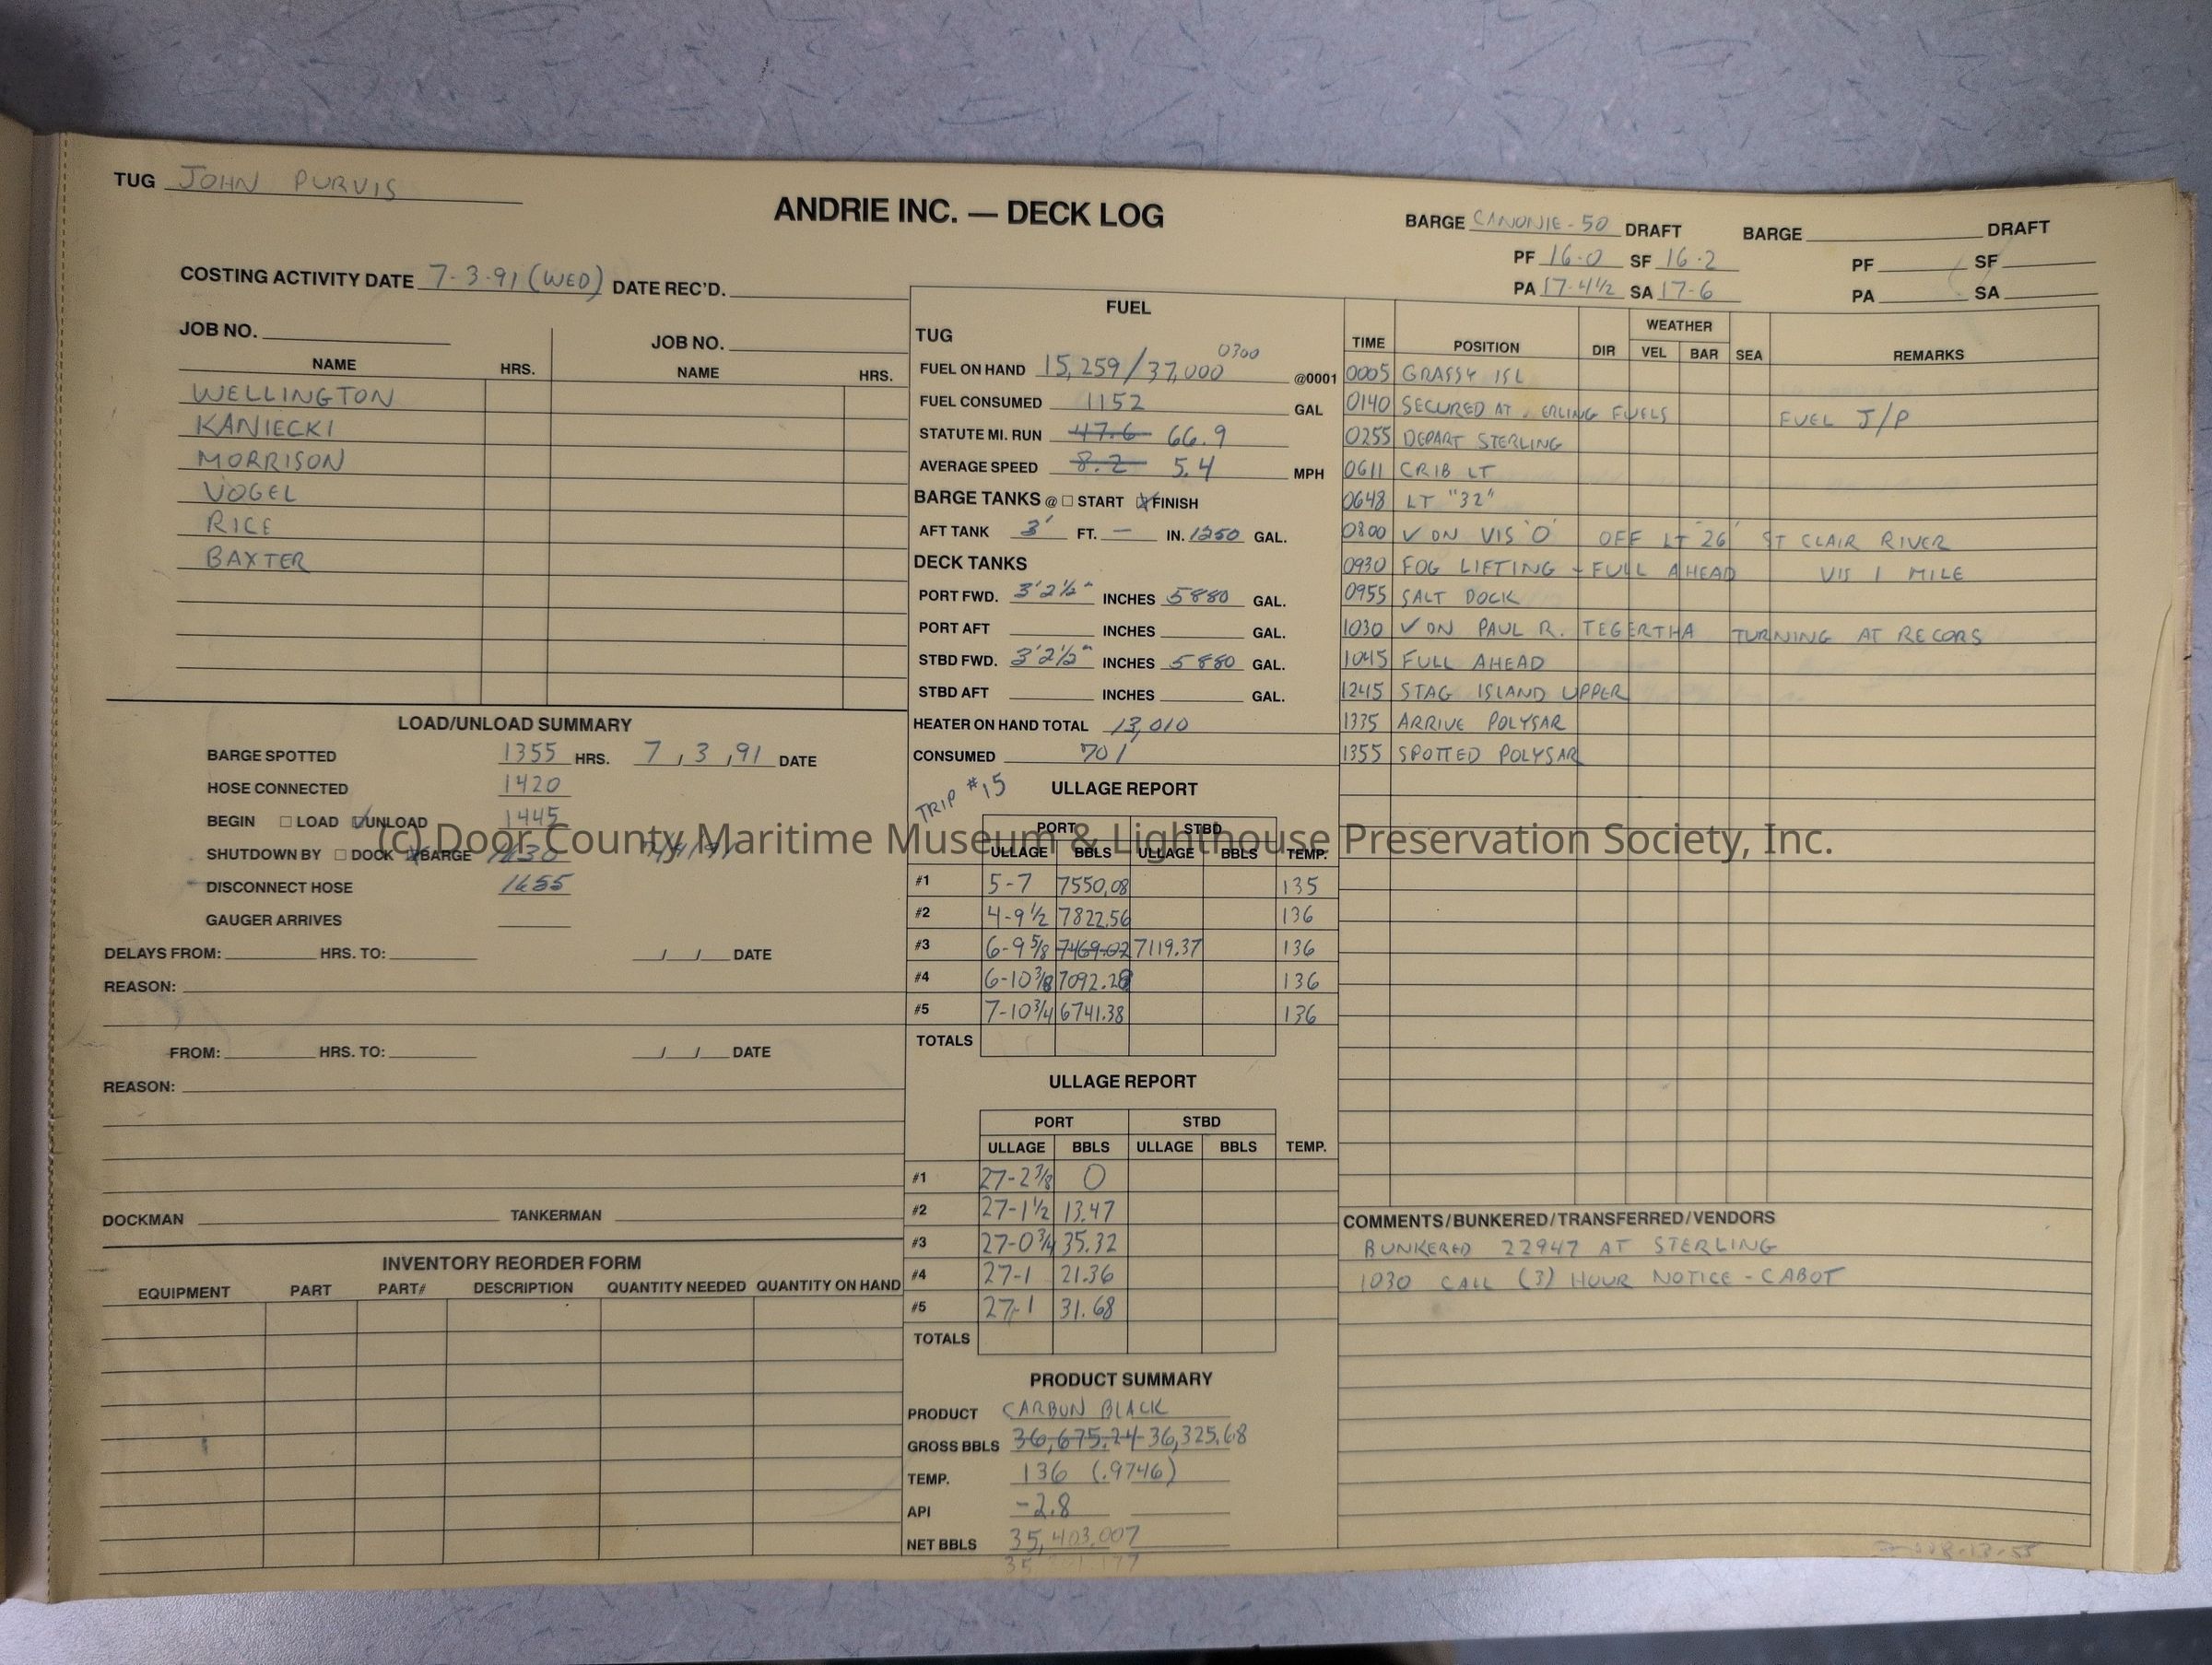 TUG JOHN PURVIS
ANDRIE INC. — DECK LOG
BARGE CANONIE-50 DRAFT BARGE DRAFT
PF 16-0 SF 16-2 PF SF
PA 17-4½ SA 17-6 PA SA
COSTING ACTIVITY DATE 7-3-91 (WED) DATE REC'D.
JOB NO. JOB NO.
NAME HRS. NAME HRS.
WELLINGTON
KANIECKI
MORRISON
VOGEL
RICE
BAXTER
LOAD/UNLOAD SUMMARY
BARGE SPOTTED 1355 HRS. 7,3,91 DATE
HOSE CONNECTED 1420
BEGIN LOAD UNLOAD 1445
SHUTDOWN BY DOCK BARGE
DISCONNECT HOSE 1655
GAUGER ARRIVES
DELAYS FROM: HRS. TO: / / DATE
REASON:
FROM: HRS. TO: / / DATE
REASON:
DOCKMAN TANKERMAN
INVENTORY REORDER FORM
EQUIPMENT PART PART# DESCRIPTION QUANTITY NEEDED QUANTITY ON HAND
FUEL
TUG
0300
FUEL ON HAND 15,259/37,000 @0001
FUEL CONSUMED 1152 GAL
STATUTE MI. RUN 47.6 66.9
AVERAGE SPEED 8.2 5.4 MPH
BARGE TANKS @ START FINISH
AFT TANK 3' FT. — IN. 1250 GAL.
DECK TANKS
PORT FWD. 3'2½" INCHES 5880 GAL.
PORT AFT INCHES GAL.
STBD FWD. 3'2½" INCHES 5880 GAL.
STBD AFT INCHES GAL.
HEATER ON HAND TOTAL 13,010
CONSUMED 701
TRIP #15
ULLAGE REPORT
PORT STBD
ULLAGE BBLS ULLAGE BBLS TEMP.
#1 5-7 7550.08 135
#2 4-9½ 7822.56 136
#3 6-9⅝ 7469.02 7119.37 136
#4 6-10⅜ 7092.28 136
#5 7-10¾ 6741.38 136
TOTALS
ULLAGE REPORT
PORT STBD
ULLAGE BBLS ULLAGE BBLS TEMP.
#1 27-2⅜ 0
#2 27-1½ 13.47
#3 27-0¾ 35.32
#4 27-1 21.36
#5 27-1 31.68
TOTALS
PRODUCT SUMMARY
PRODUCT CARBON BLACK
GROSS BBLS 36,675.24 36,325.68
TEMP. 136 (.9746)
API -2.8
NET BBLS 35,403.007
WEATHER
TIME POSITION DIR VEL BAR SEA REMARKS
0005 GRASSY ISL
0140 SECURED AT ERLING FUELS FUEL J/P
0255 DEPART STERLING
0611 CRIB LT
0648 LT "32"
0800 √ ON VIS 'O' OFF LT "26" ST CLAIR RIVER
0930 FOG LIFTING - FULL AHEAD VIS 1 MILE
0955 SALT DOCK
1030 √ ON PAUL R. TEGERTHA TURNING AT RECORS
1045 FULL AHEAD
1245 STAG ISLAND UPPER
1335 ARRIVE POLYSAR
1355 SPOTTED POLYSAR
COMMENTS/BUNKERED/TRANSFERRED/VENDORS
BUNKERED 22947 AT STERLING
1030 CALL (3) HOUR NOTICE - CABOT
(c) Door County Maritime Museum & Lighthouse Preservation Society, Inc.